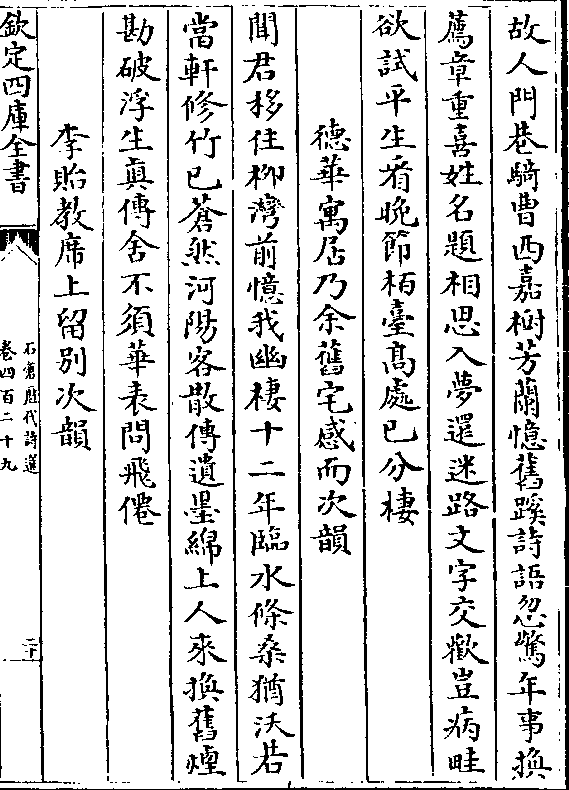 故人門巷騎曹西嘉樹芳蘭憶舊蹊詩語忽驚年事換
薦章重喜姓名題相思入夢還迷路文字交歡豈病畦
欲試平生看晩節栢臺髙處已分棲
德華寓居乃余舊宅感而次韻
聞君移住柳灣前憶我幽棲十二年臨水條桑猶沃若
當軒修竹已蒼然河陽客散傳遺墨綿上人來換舊煙
勘破浮生真傳舍不須華表問飛僊
李貽教席上留別次韻
欽定四庫全書
石倉歷代詩選
卷四百二十九
二十